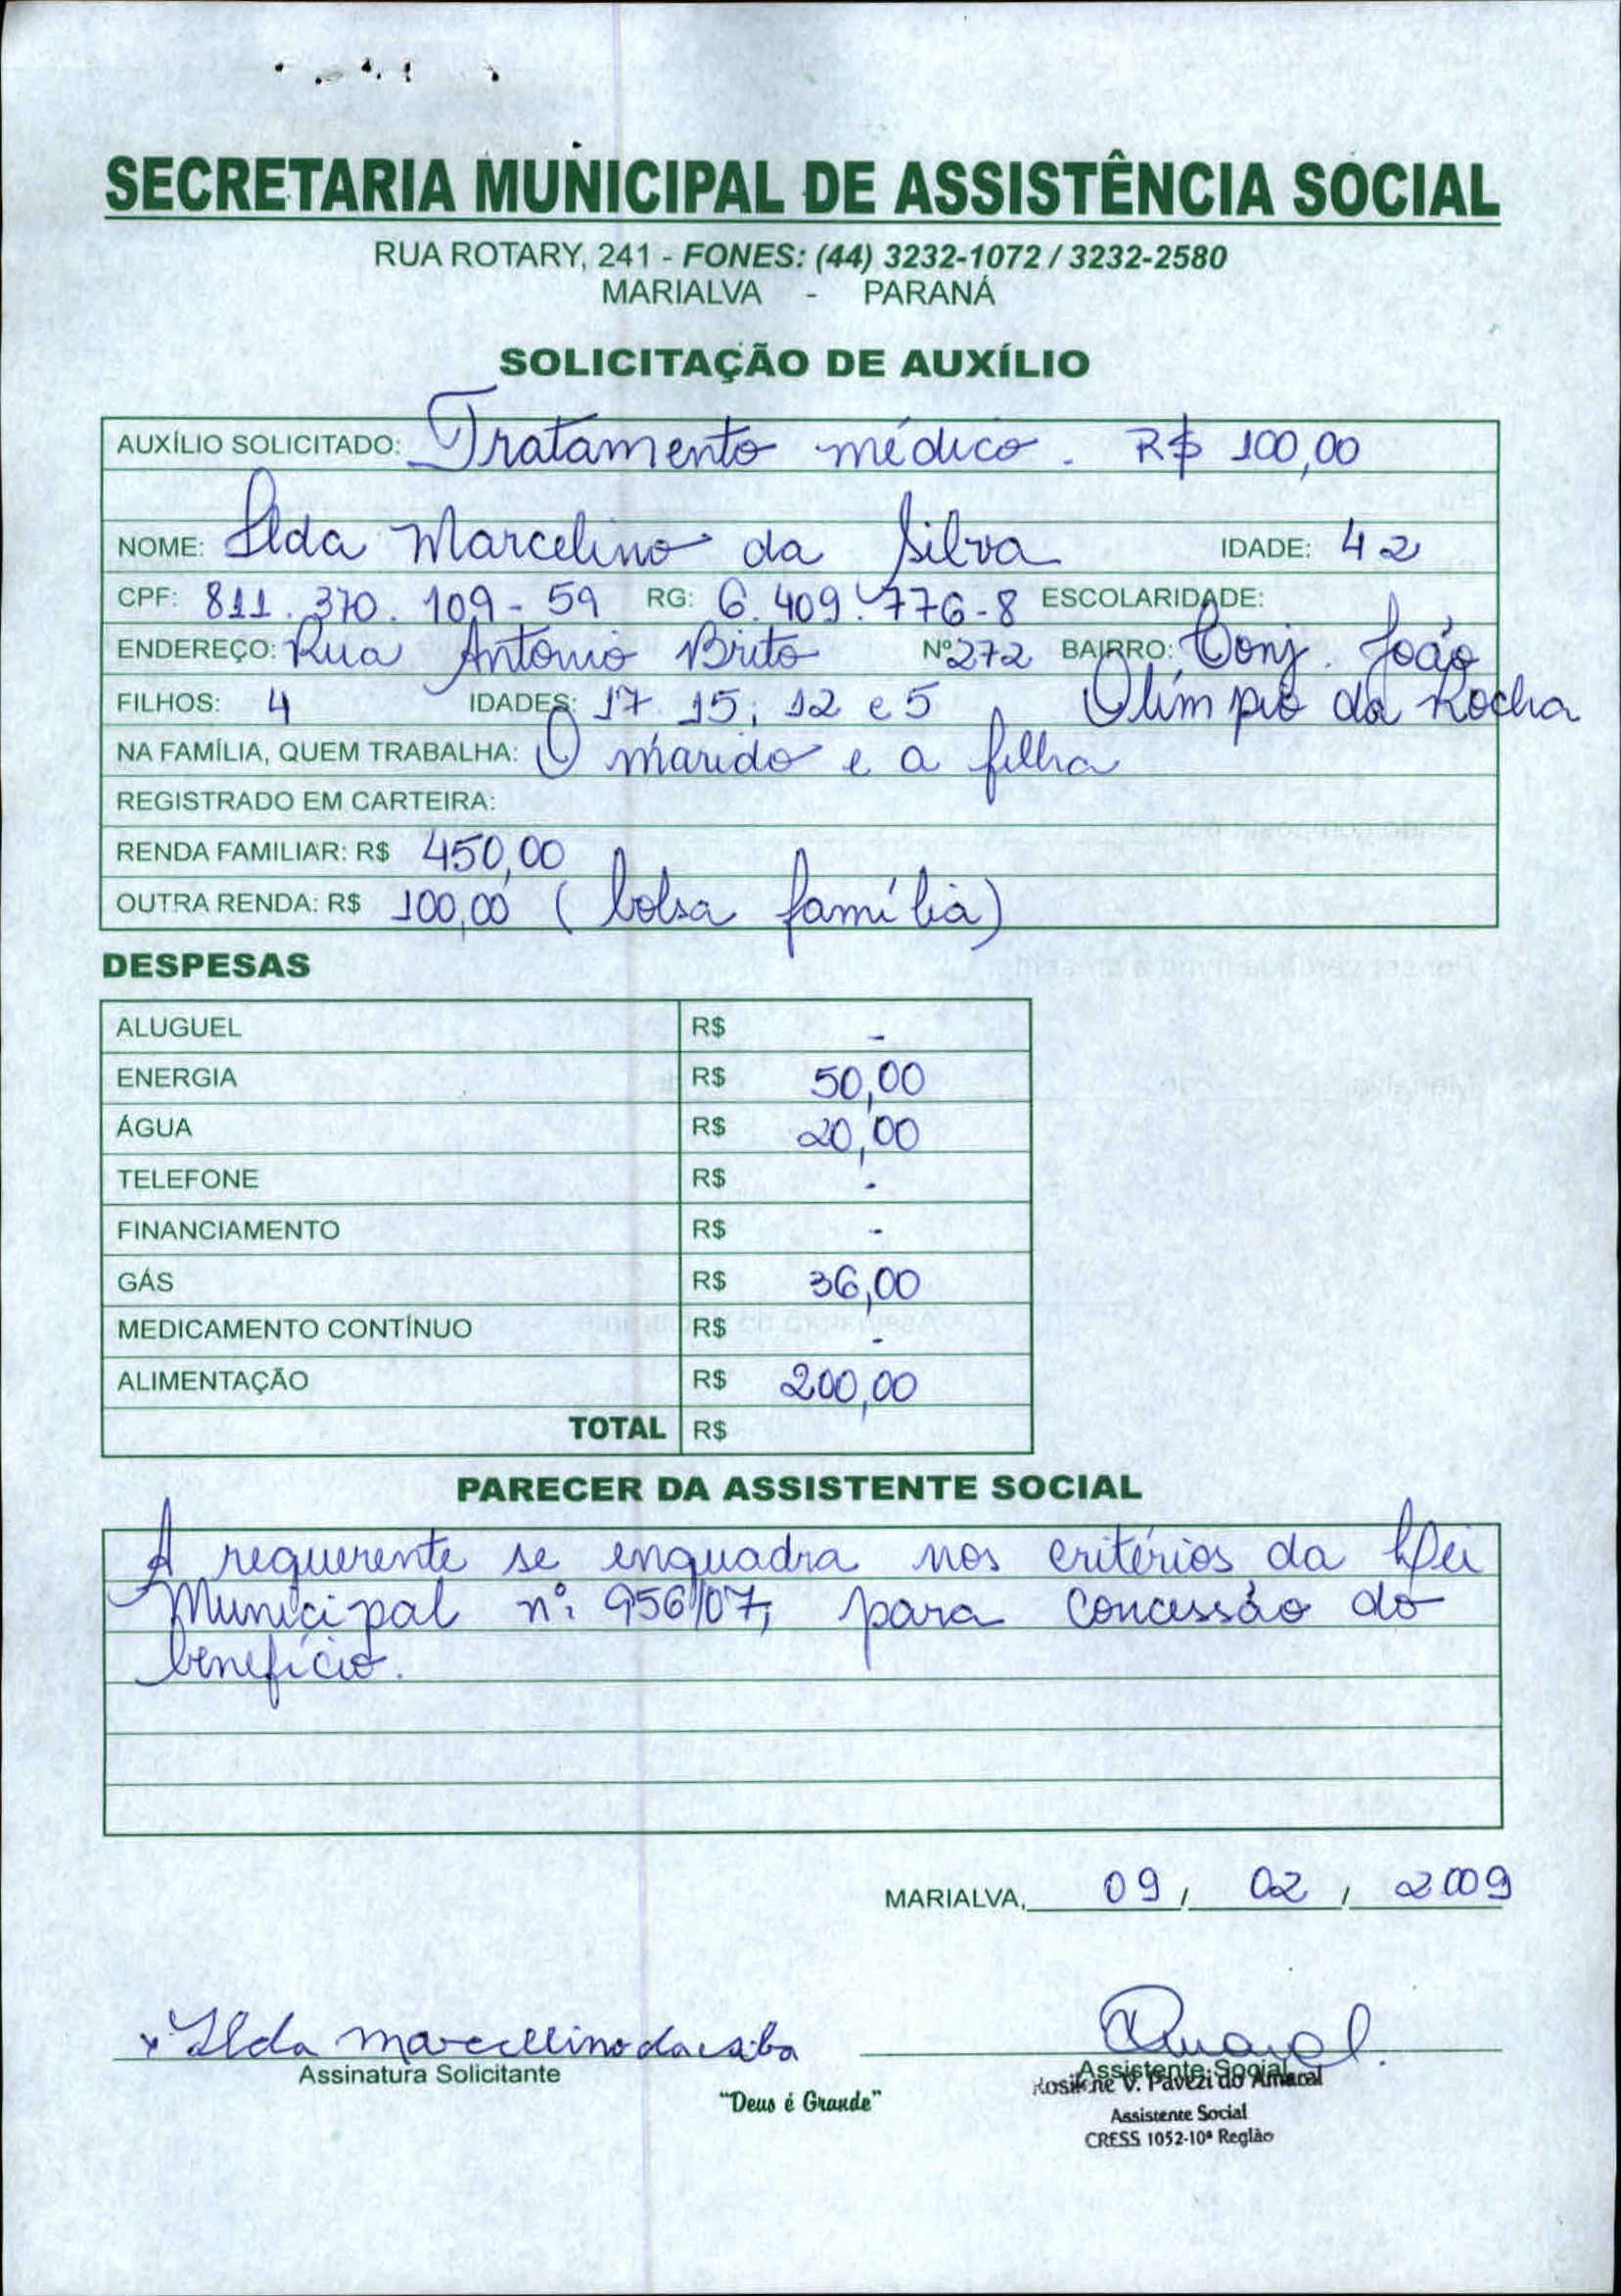 SECRETARIA MUNICIPAL DE ASSISTÊNCIA SOCIAL
RUA ROTARY, 241 - FONES: (44) 3232-1072 / 3232-2580
MARIALVA - PARANÁ
SOLICITAÇÃO DE AUXÍLIO
AUXÍLIO SOLICITADO: Tratamento médico. R$ 100,00
NOME: Ilda Marcelino da Silva IDADE: 42
CPF: 811.370.109-59 RG: 6.409.776-8 ESCOLARIDADE:
ENDEREÇO: Rua Antonio Brito Nº 272 BAIRRO: Conj. João
FILHOS: 4 IDADES: 17 15, 12 e 5 Olímpio da Rocha
NA FAMÍLIA, QUEM TRABALHA: O marido e a filha
REGISTRADO EM CARTEIRA:
RENDA FAMILIAR: R$ 450,00
OUTRA RENDA: R$ 100,00 (bolsa família)
DESPESAS
ALUGUEL R$ -
ENERGIA R$ 50,00
ÁGUA R$ 20,00
TELEFONE R$ -
FINANCIAMENTO R$ -
GÁS R$ 36,00
MEDICAMENTO CONTÍNUO R$ -
ALIMENTAÇÃO R$ 200,00
TOTAL R$
PARECER DA ASSISTENTE SOCIAL
A requerente se enquadra nos critérios da Lei
Municipal nº: 956/07, para concessão do
benefício.
MARIALVA, 09 / 02 / 2009
x Ilda marcellino da silva Amaral.
Assinatura Solicitante Assistente Social
Rosilene V. Pavezi do Amaral
"Deus é Grande"
Assistente Social
CRESS 1052-10ª Região